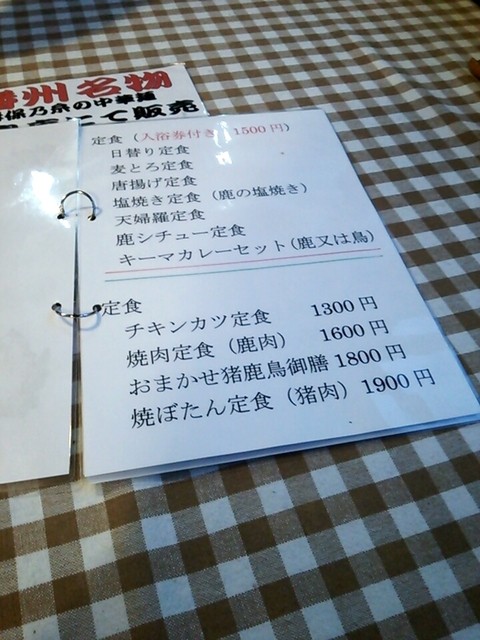 州名物
保乃泉の中華麺
にて販売
定食（入浴券付き 1500円）
日替り定食
麦とろ定食
唐揚げ定食
塩焼き定食（鹿の塩焼き）
天婦羅定食
鹿シチュー定食
キーマカレーセット（鹿又は鳥）
定食
チキンカツ定食 1300円
焼肉定食（鹿肉） 1600円
おまかせ猪鹿鳥御膳 1800円
焼ぼたん定食（猪肉） 1900円